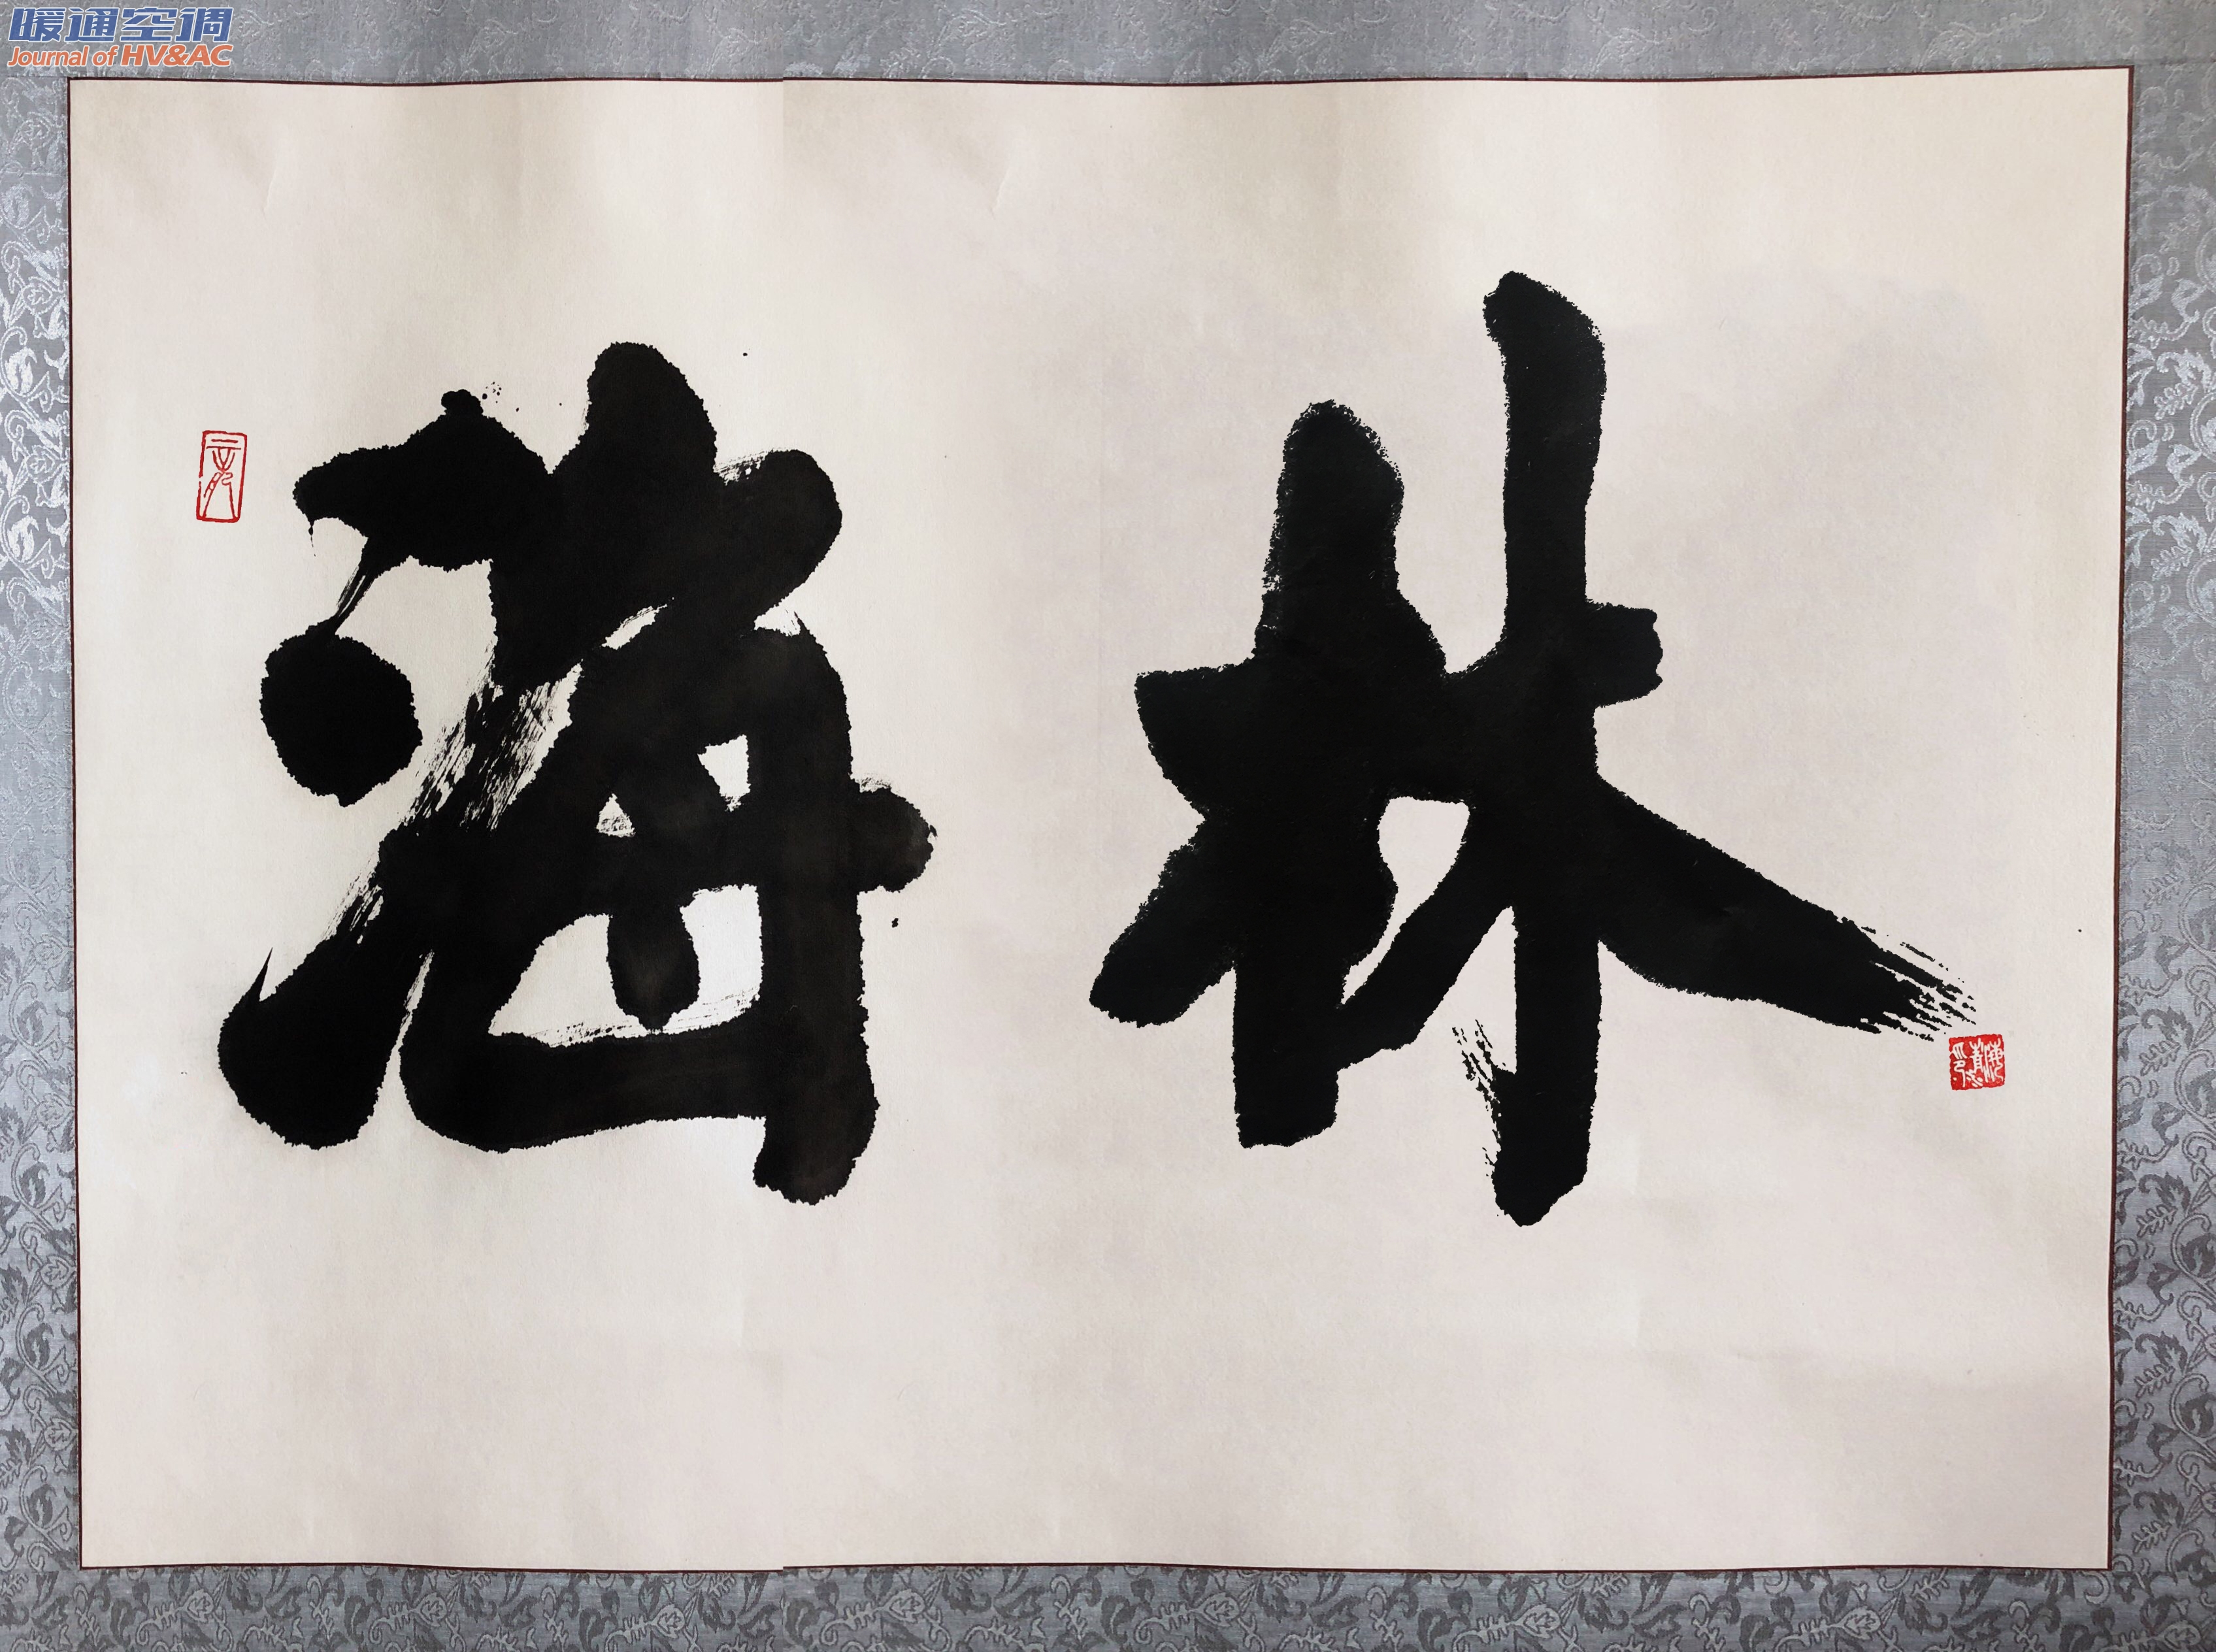 暖通空调
Journal of HV&AC
海林